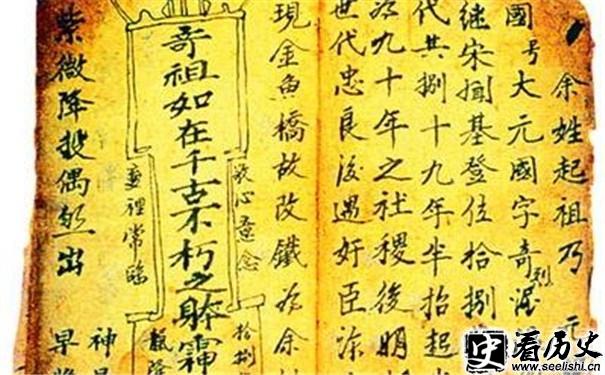 余姓起祖乃元
國号大元國字奇渥
继宋開基登位拾捌
代共捌十九年半抬起
为九十年之社稷後明
世代忠良後遇奸臣涂
現金魚橋故改鐵为余
心意念
拾捌
奇祖如在千古不朽之躰霝
裡常臨
紫微降披偶然出
神
早
看历史
www.seelishi.cn